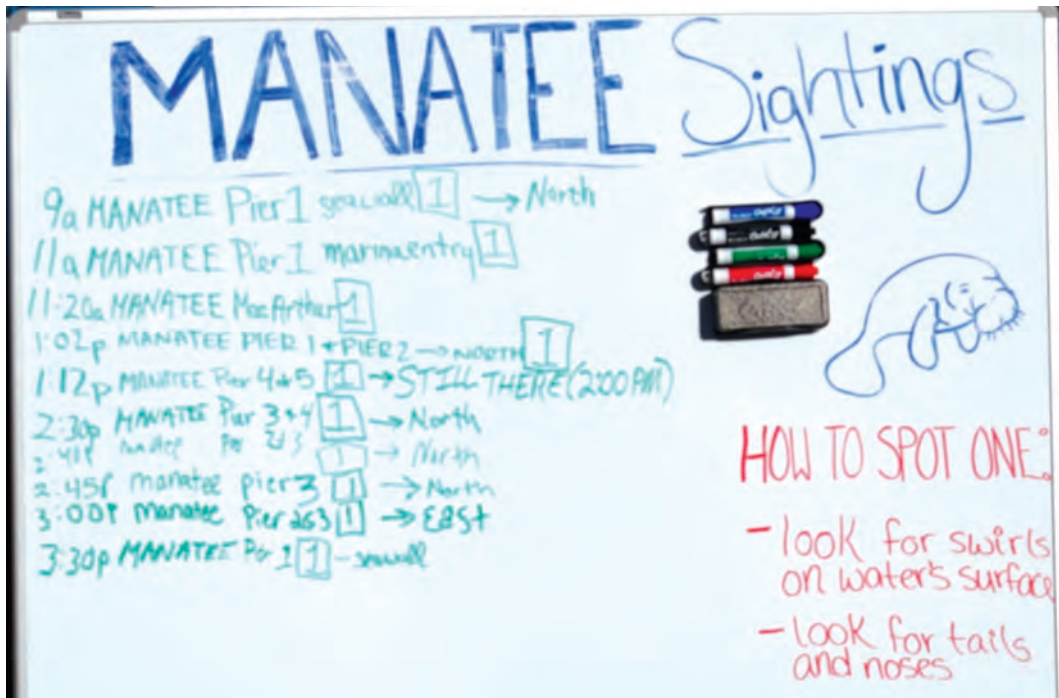 MANATEE Sightings
9a MANATEE Pier 1 seawall 1 → North
11a MANATEE Pier 1 marina entry 1
11:20a MANATEE MacArthur 1
1:02p MANATEE PIER 1 + PIER 2 → NORTH 1
1:12p MANATEE Pier 4+5 1 → STILL THERE (2:00 PM)
2:30p MANATEE Pier 3+4 1 → North
manatee 1 → North
2:45P manatee pier 3 1 → North
3:00P manatee Pier 2&3 1 → EAST
3:30p MANATEE Pier 1 1 - seawall
EXPO
EXPO
EXPO
EXPO
HOW TO SPOT ONE:
- look for swirls
on water's surface
- look for tails
and noses